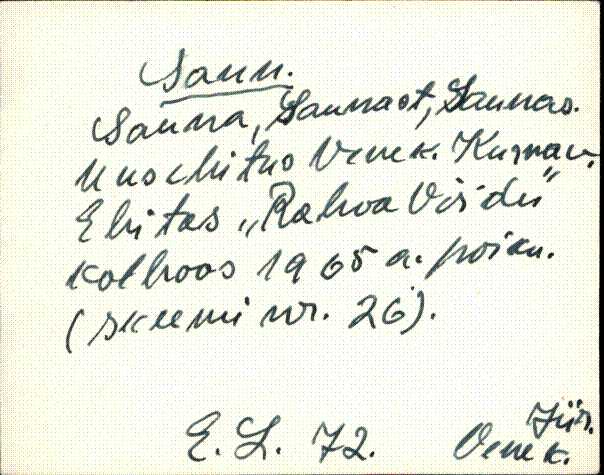 Saun.
Sauna, Saunast, Saunas.
Uusehitus Venek. Kurnav.
Ehitas „Rahva Võidu"
kolhoos 1965 a. poiku.
(skeemi nr. 26).
E. L. 72.
Jür.
Venek.